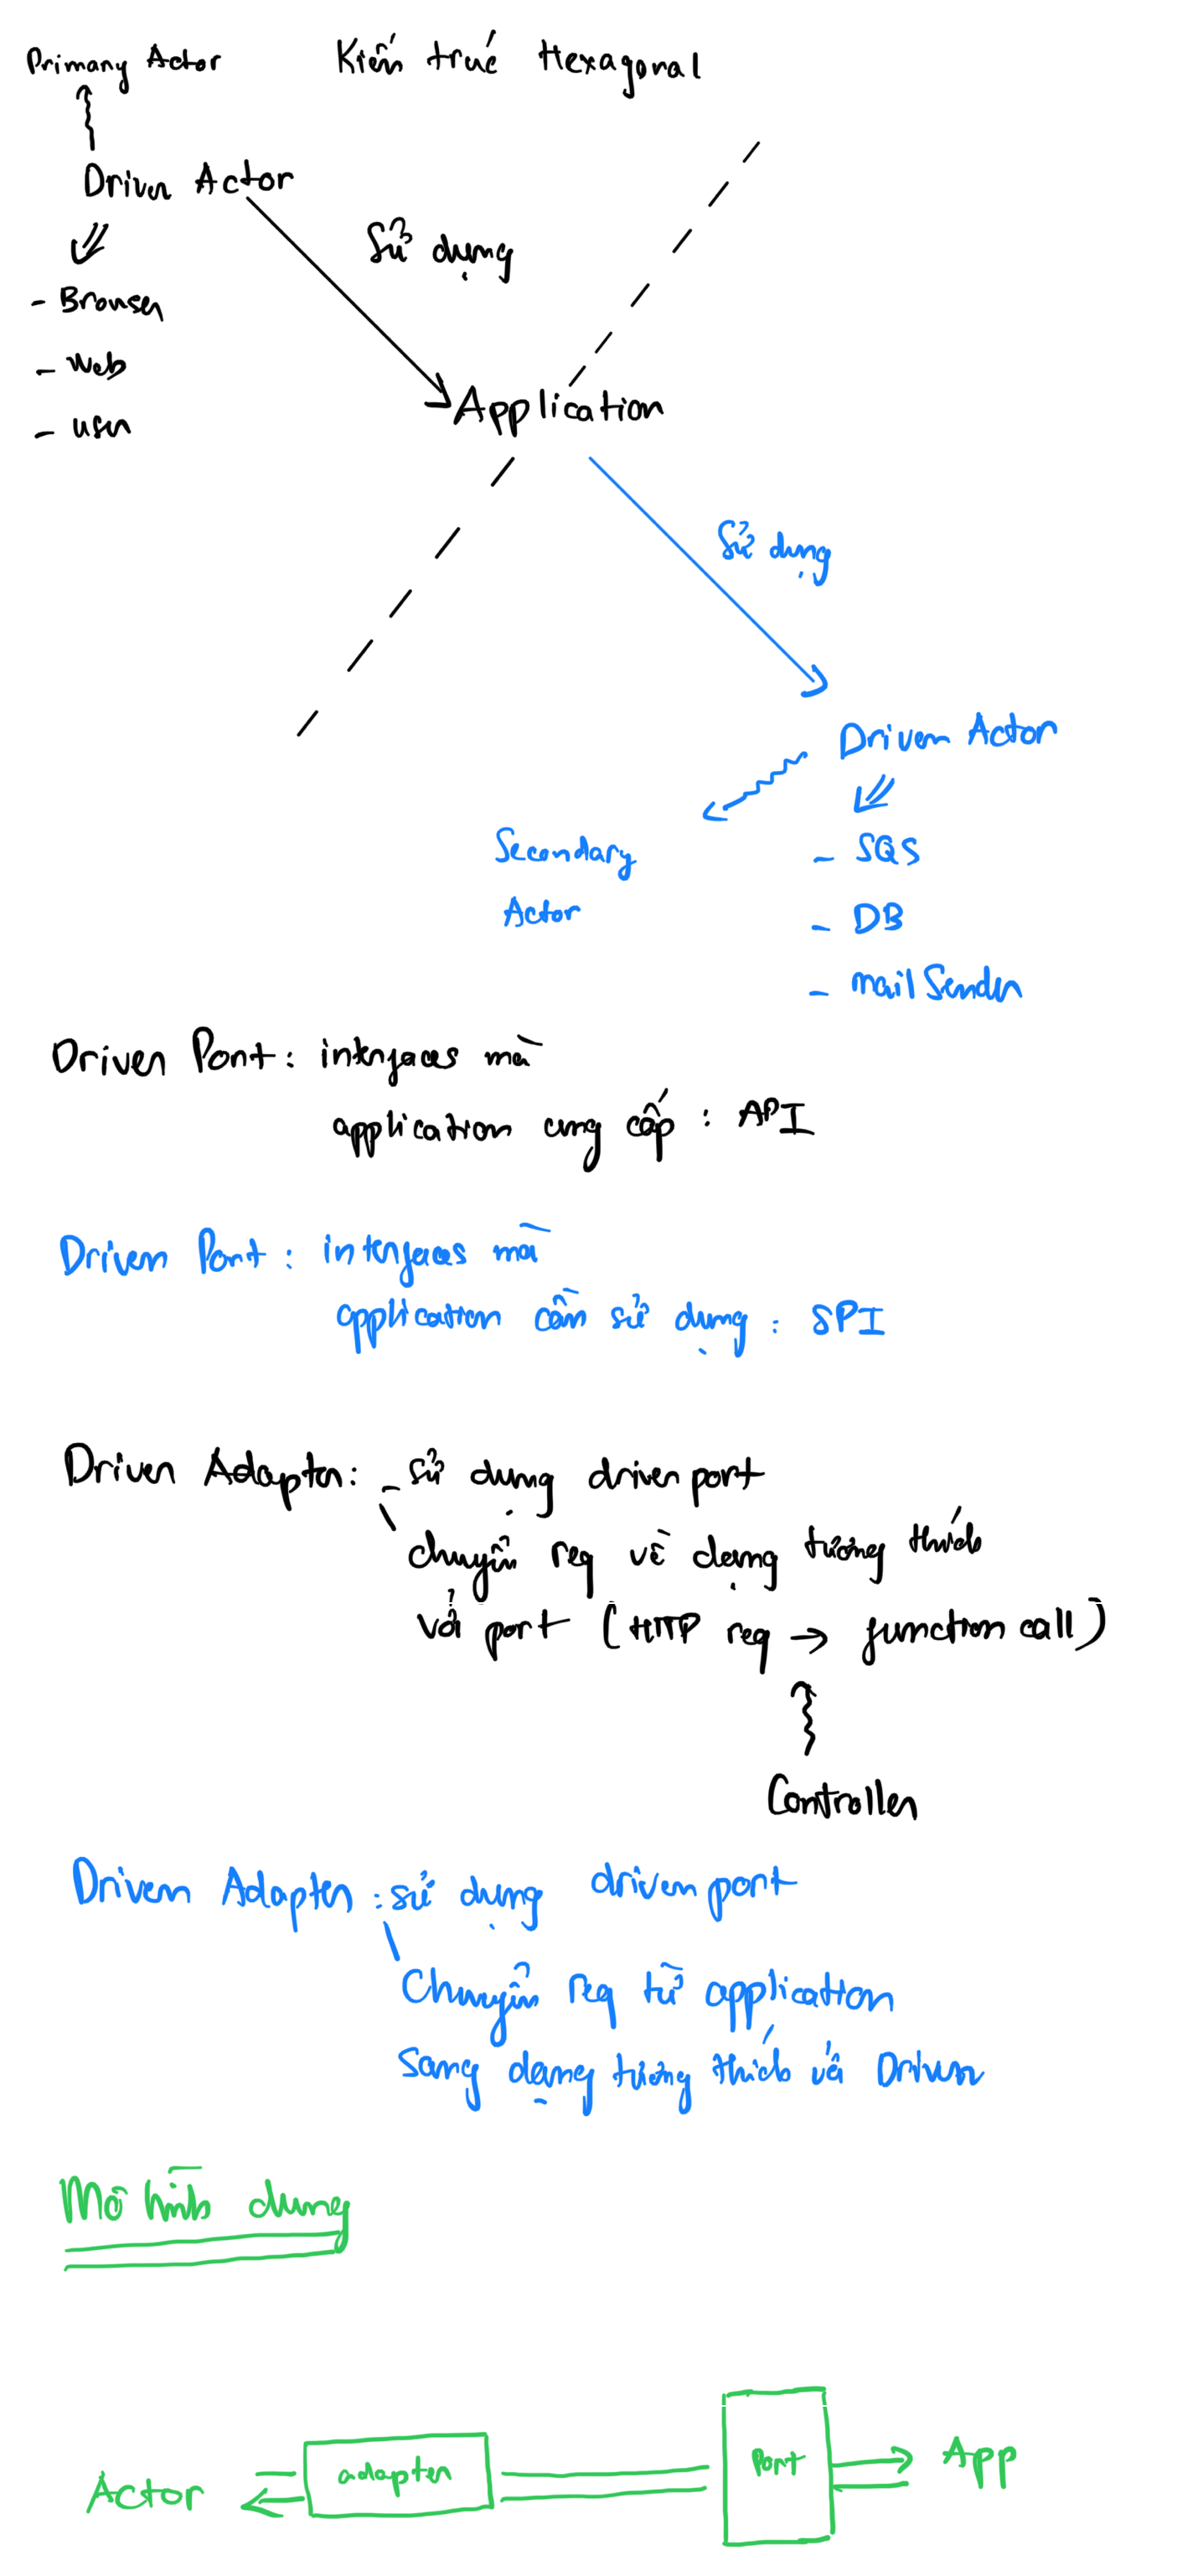 Primary Actor
Kiến trúc Hexagonal
Driver Actor
Sử dụng
- Browser
- Web
- user
Application
Sử dụng
Driven Actor
Secondary
Actor
- SQS
- DB
- mail Sender
Driver Port: interfaces mà
application cung cấp : API
Driven Port : interfaces mà
application cần sử dụng : SPI
Driver Adapter: - sử dụng driver port
chuyển req về dạng tương thích
với port (HTTP req → function call)
Controller
Driven Adapter : sử dụng driven port
Chuyển req từ application
sang dạng tương thích với Driven
Mô hình dung
Actor
adapter
Port
App